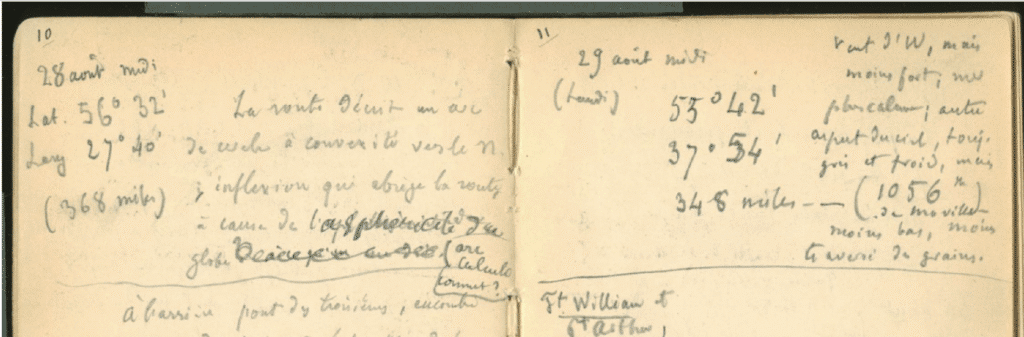 10
28 août midi
Lat. 56° 32'
Long 27° 40'
(368 miles)
La route décrit un arc
de cercle à convexité vers le N.
; inflexion qui abrège la route
à cause de la sphéricité du
globe (arc
calculé
comment?
à l'arrière pont des troisièmes, encombré
11
29 août midi
(lundi)
55° 42'
37° 54'
348 miles - — (1056
de Moville
vent d'W, mais
moins fort; mer
plus calme; autre
aspect du ciel, touj.
gris et froid, mais
moins bas, moins
traversé de grains.
Ft William et
Pt Arthur,